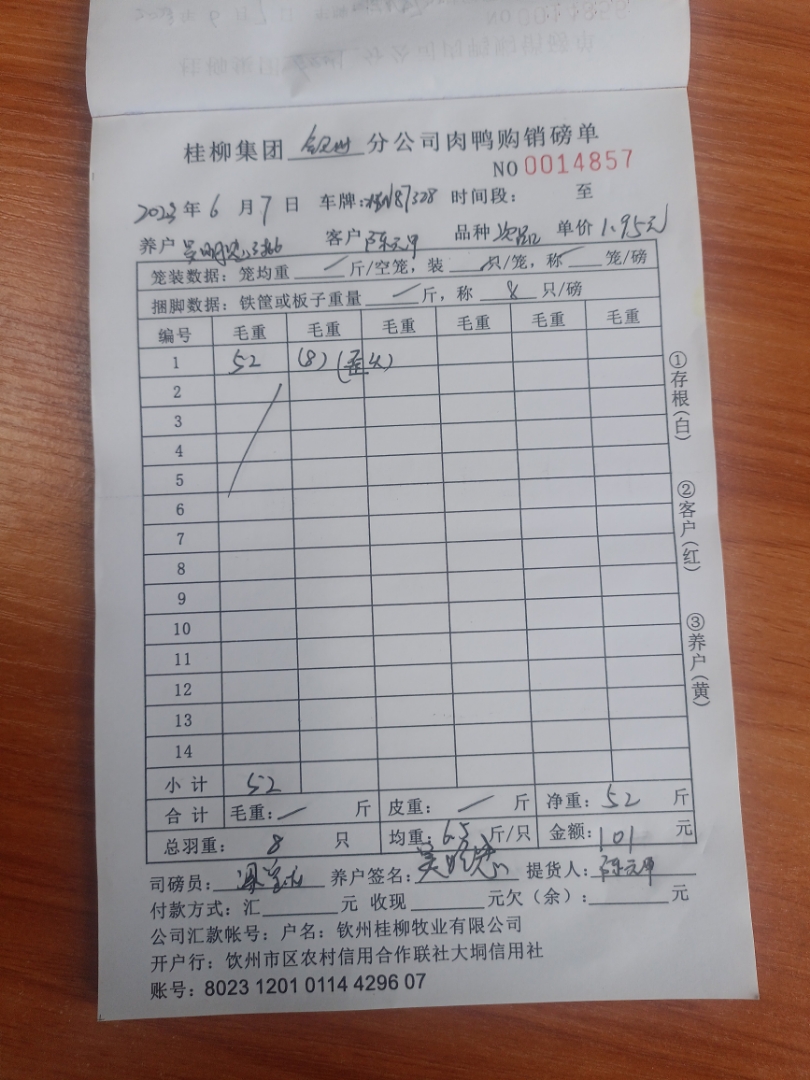 桂柳集团 钦州 分公司肉鸭购销磅单
NO 0014857
2023 年 6 月 7 日 车牌:桂N87328 时间段: 至
养户 吴明 客户 陈元甲 品种 次品 单价 1.95元
笼装数据: 笼均重 / 斤/空笼, 装 只/笼, 称 / 笼/磅
捆脚数据: 铁筐或板子重量 / 斤, 称 8 只/磅
编号 毛重 毛重 毛重 毛重 毛重 毛重
1 52 (8) (歪头)
2
3
4
5
6
7
8
9
10
11
12
13
14
小计 52
合计 毛重: / 斤 皮重: / 斤 净重: 52 斤
总羽重: 8 只 均重: 6.5 斤/只 金额: 101 元
司磅员: 养户签名: 吴明 提货人: 陈元甲
付款方式: 汇 元 收现 元欠(余): 元
公司汇款帐号: 户名: 钦州桂柳牧业有限公司
开户行: 饮州市区农村信用合作联社大垌信用社
账号: 8023 1201 0114 4296 07
①存根(白)
②客户(红)
③养户(黄)